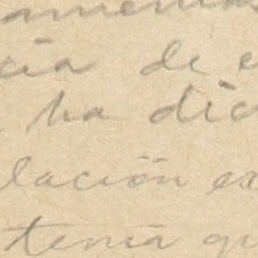 cia de
ha dic
lación ex
tenía qu